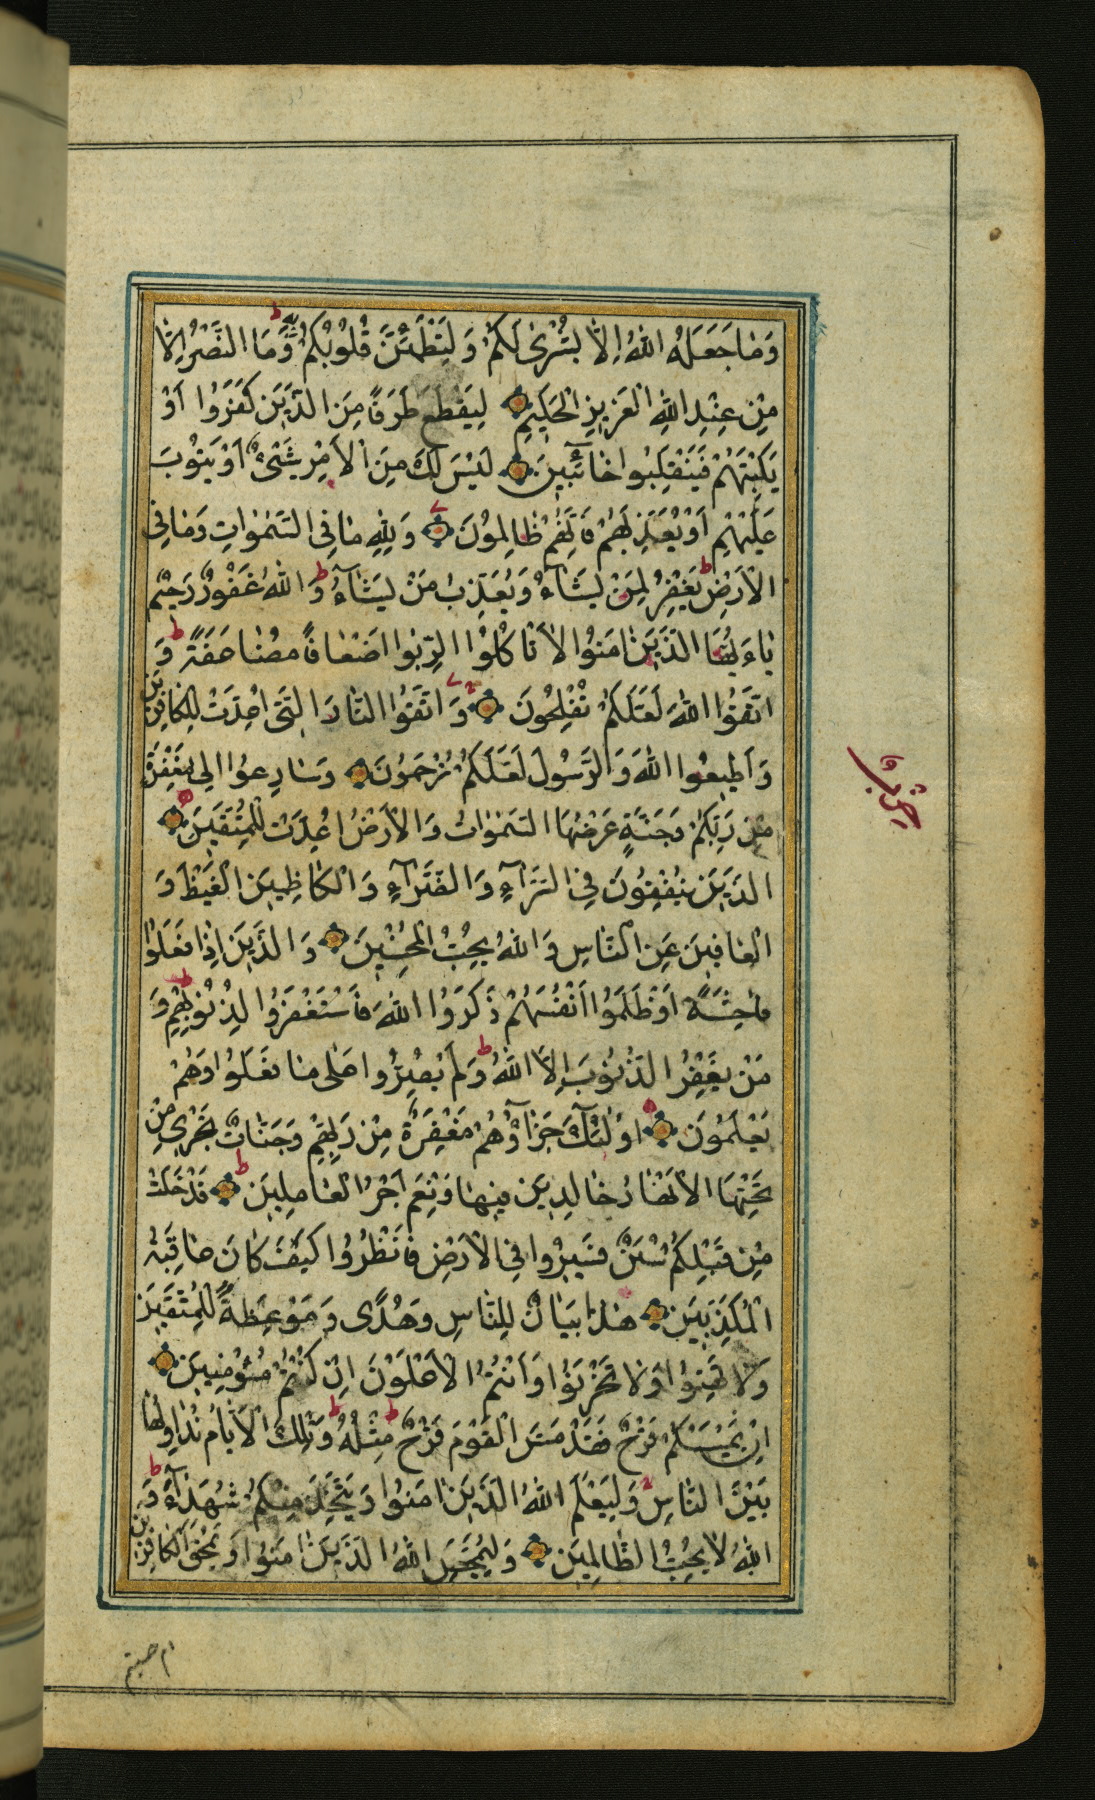 وَمَا جَعَلَهُ اللهُ اِلَّا بُشْرٰى لَكُمْ وَلِتَطْمَئِنَّ قُلُوْبُكُمْ بِهِ وَمَا النَّصْرُ اِلَّا
مِنْ عِنْدِ اللهِ الْعَزِيزِ الْحَكِيمِ لِيَقْطَعَ طَرَفًا مِنَ الَّذِينَ كَفَرُوا اَوْ
يَكْبِتَهُمْ فَيَنْقَلِبُوا خَائِبِينَ لَيْسَ لَكَ مِنَ الْاَمْرِ شَىْءٌ اَوْ يَتُوْبَ
عَلَيْهِمْ اَوْ يُعَذِّبَهُمْ فَاِنَّهُمْ ظَالِمُونَ وَلِلّٰهِ مَا فِى السَّمٰوَاتِ وَمَا فِى
الْاَرْضِ يَغْفِرُ لِمَنْ يَشَآءُ وَيُعَذِّبُ مَنْ يَشَآءُ وَاللهُ غَفُوْرٌ رَحِيْمٌ
يَاءَيُّهَا الَّذِينَ اٰمَنُوا لَا تَاْكُلُوْا الرِّبٰوا اَضْعَافًا مُضَاعَفَةً وَ
اتَّقُوْا اللهَ لَعَلَّكُمْ تُفْلِحُونَ وَاتَّقُوْا النَّارَ الَّتِى اُعِدَّتْ لِلْكَافِرِينَ
وَاَطِيعُوا اللهَ وَالرَّسُولَ لَعَلَّكُمْ تُرْحَمُوْنَ وَسَارِعُوْا اِلٰى مَغْفِرَةٍ
مِنْ رَبِّكُمْ وَجَنَّةٍ عَرْضُهَا السَّمٰوَاتُ وَالْاَرْضُ اُعِدَّتْ لِلْمُتَّقِينَ
الَّذِينَ يُنْفِقُونَ فِى السَّرَّآءِ وَالضَّرَّآءِ وَالْكَاظِمِينَ الْغَيْظَ وَ
الْعَافِينَ عَنِ النَّاسِ وَاللهُ يُحِبُّ الْمُحْسِنِينَ وَالَّذِينَ اِذَا فَعَلُوْا
فَاحِشَةً اَوْ ظَلَمُوا اَنْفُسَهُمْ ذَكَرُوا اللهَ فَاسْتَغْفَرُوا لِذُنُوْبِهِمْ وَ
مَنْ يَغْفِرُ الذُّنُوْبَ اِلَّا اللهُ وَلَمْ يُصِرُّوا عَلٰى مَا فَعَلُوا وَهُمْ
يَعْلَمُونَ اُولٰئِكَ جَزَآؤُهُمْ مَغْفِرَةٌ مِنْ رَبِّهِمْ وَجَنَّاتٌ تَجْرِى مِنْ
تَحْتِهَا الْاَنْهَارُ خَالِدِينَ فِيهَا وَنِعْمَ اَجْرُ الْعَامِلِينَ قَدْ خَلَتْ
مِنْ قَبْلِكُمْ سُنَنٌ فَسِيرُوا فِى الْاَرْضِ فَانْظُرُوا كَيْفَ كَانَ عَاقِبَةُ
الْمُكَذِّبِينَ هٰذَا بَيَانٌ لِلنَّاسِ وَهُدًى وَمَوْعِظَةٌ لِلْمُتَّقِينَ
وَلَا تَهِنُوا وَلَا تَحْزَنُوا وَاَنْتُمُ الْاَعْلَوْنَ اِنْ كُنْتُمْ مُؤْمِنِينَ
اِنْ يَمْسَسْكُمْ قَرْحٌ فَقَدْ مَسَّ الْقَوْمَ قَرْحٌ مِثْلُهُ وَتِلْكَ الْاَيَّامُ نُدَاوِلُهَا
بَيْنَ النَّاسِ وَلِيَعْلَمَ اللهُ الَّذِينَ اٰمَنُوا وَيَتَّخِذَ مِنْكُمْ شُهَدَآءَ وَ
اللهُ لَا يُحِبُّ الظَّالِمِينَ وَلِيُمَحِّصَ اللهُ الَّذِينَ اٰمَنُوا وَيَمْحَقَ الْكَافِرِينَ
ام حسبتم